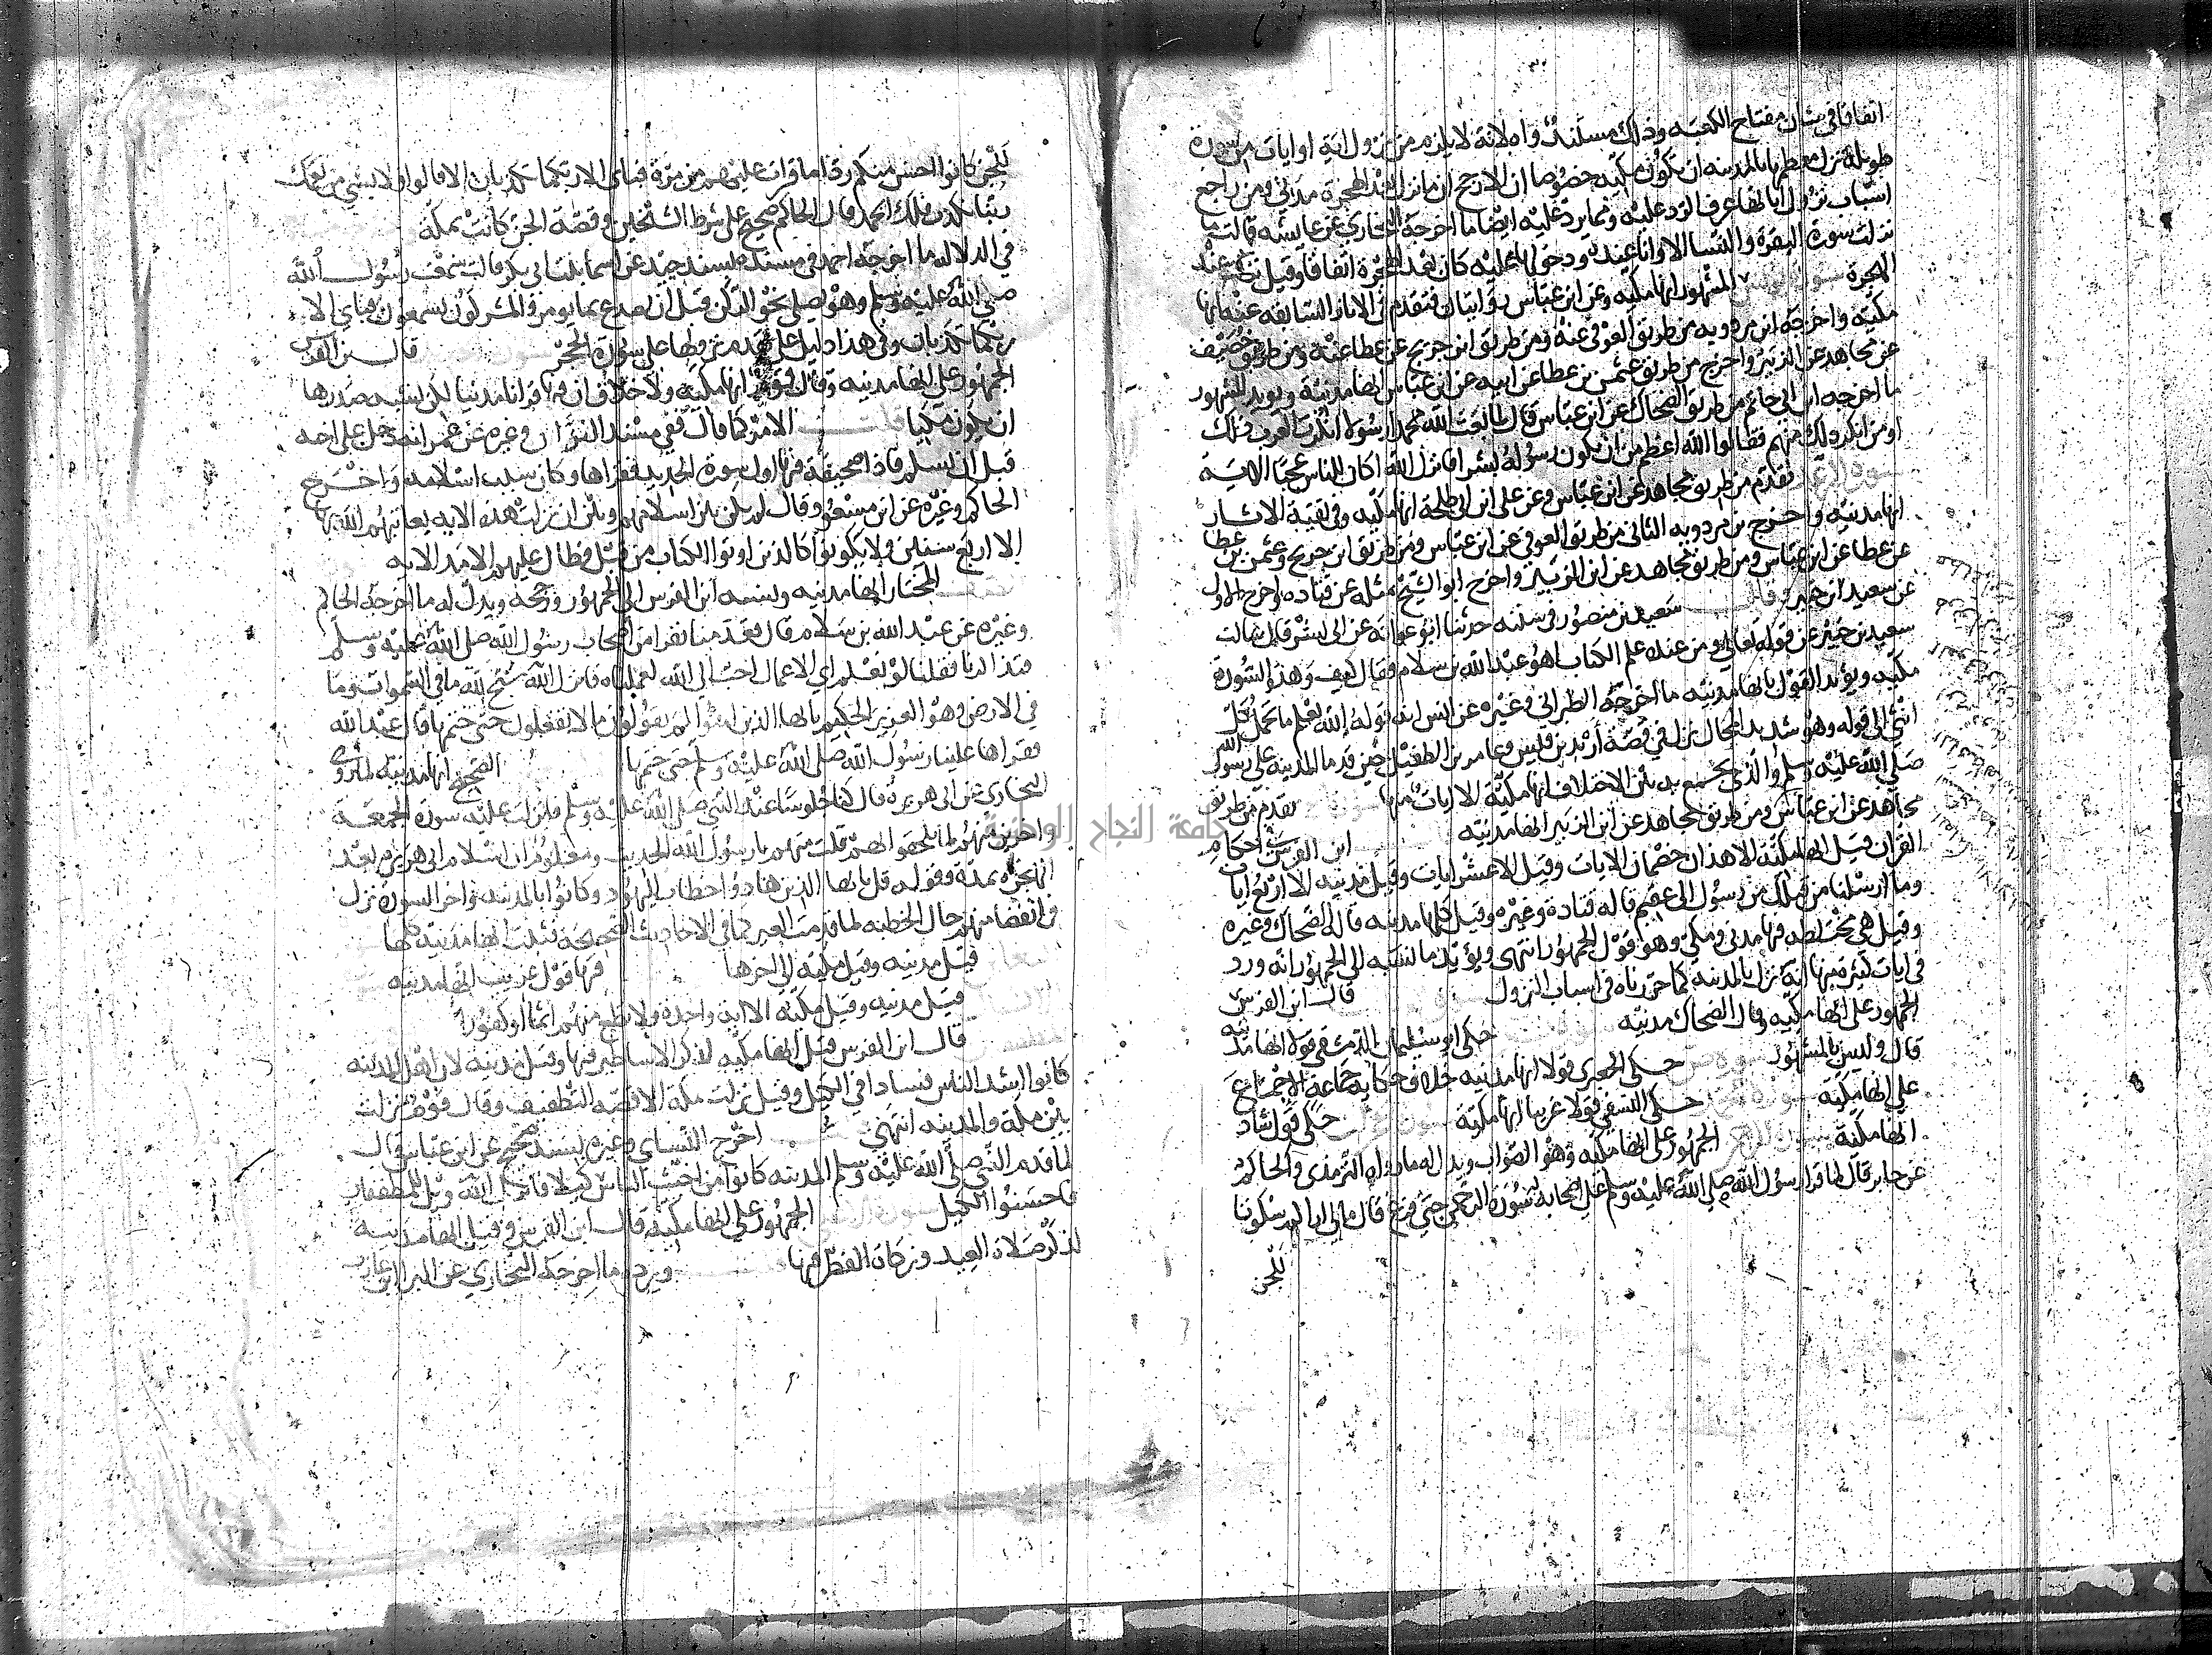 اتفاقا في شان مفتاح الكعبه وذلك مستند واه لانه لا يلزم من نزول اية او ايات من سورة
طويلة نزل معظمها بالمدينه ان تكون مكيه خصوصا ان الارجح ان ما نزل بعد الهجرة مدني ومن راجع
اسباب نزول اياتها عرف الرد عليه ومما يرد عليه ايضا ما اخرجه البخاري عن عايشه قالت ما
نزلت سورة البقرة والنسا الا وانا عنده ودخولها عليه كان بعد الهجرة اتفاقا وقيل نزلت عند
الهجرة سورة يونس المشهور انها مكيه وعن ابن عباس روايتان فتقدم في الاثار السابقه عنه انها
مكيه واخرجه ابن مردويه من طريق العوفي عنه ومن طريق ابن جريج عن عطا عنه ومن طريق خصيف
عن مجاهد عن ابن الزبير واخرج من طريق عثمن بن عطا عن ابيه عن ابن عباس انها مدنية ويويد المشهور
ما اخرجه ابن ابي حاتم من طريق الضحاك عن ابن عباس قال لما بعث الله محمدا رسولا انكرت العرب ذلك
او من انكر ذلك منهم فقالوا الله اعظم من ان يكون رسوله بشرا فانزل الله اكان للناس عجبا الايه
سورة الرعد تقدم من طريق مجاهد عن ابن عباس وعن علي ابن ابي طلحة انها مكيه وفي بقية الاثار
انها مدنيه واخرج بن مردويه الثاني من طريق العوفي عن ابن عباس ومن طريق ابن جريج وعثمن بن عطا
عن عطا عن ابن عباس ومن طريق مجاهد عن ابن الزبير واخرج ابو الشيخ مثله عن قتاده واخرج الاول
عن سعيد ابن جبير وقال سعيد بن منصور في سننه حدثنا ابو عوانه عن ابي بشر قال سالت
سعيد بن جبير عن قوله تعالى ومن عنده علم الكتاب اهو عبد الله بن سلام فقال كيف وهذه السورة
مكيه ويؤيد القول بانها مدنيه ما اخرجه الطبراني وغيره عن انس ان قوله الله يعلم ما تحمل كل
انثى الى قوله وهو شديد المحال نزل في قصة اربد بن قيس وعامر بن الطفيل حين قدما المدينه على رسول الله
صلى الله عليه وسلم والذي يجمع به بين الاختلاف انها مكية الا ايات منها تقدم من طريق
مجاهد عن ابن عباس ومن طريق مجاهد عن ابن الزبير انها مدنيه ابن الفرس في احكام
القران قيل انها مكية الا هذان خصمان الايات وقيل الا عشر ايات وقيل مدنيه الا اربع ايات
وما ارسلنا من قبلك من رسول الى عقيم قاله قتادة وغيره وقيل كلها مدنيه قاله الضحاك وغيره
وقيل هي مختلطه فيها مدني ومكي وهو قول الجمهور انتهى ويؤيد ما نسبه الى الجمهور انه ورد
في ايات كثيرة منها انه نزل بالمدينه كما حررناه في اسباب النزول قال ابن الفرس
الجمهور على انها مكيه وقال الضحاك مدنيه حكى ابو سليمان الدمشقي قولا انها مدنيه
قال وليس بالمشهور سورة ص حكى الجعبري قولا انها مدنيه خلاف حكاية جماعة الاجماع
على انها مكيه حكى النسفي قولا غريبا انها مكية حكي قول شاذ
انها مكية الجمهور على انها مكيه وهو الصواب ويدل له ما رواه الترمذي والحاكم
عن جابر قال لما قرا رسول الله صلى الله عليه وسلم على اصحابه سورة الرحمن حتى فرغ قال مالي اراكم سكوتا
للجن
للجن كانوا احسن منكم ردا ما قرات عليهم من مرة فباي الا ربكما تكذبان الا قالوا ولا بشي من نعمك
ربنا نكذب فلك الحمد قال الحاكم صحيح على شرط الشيخين وقصة الجن كانت بمكة
في الدلاله ما اخرجه احمد في مسنده بسند جيد عن اسما بنت ابي بكر قالت سمعت رسول الله
صلى الله عليه وسلم وهو يصلي نحو الركن قبل ان يصدع بما يومر والمشركون يسمعون فباي الا
ربكما تكذبان وفي هذا دليل على تقدم نزولها على سورة الحجر قال بن الفرس
الجمهور على انها مدنيه وقال قوم انها مكيه ولا خلاف ان فيها قرانا مدنيا لكن يشبه صدرها
ان يكون مكيا قلت الامر كما قال ففي مسند البزار وغيره عن عمر انه دخل على اخته
قبل ان يسلم فاذا صحيفة فيها اول سورة الحديد فقراها وكان سبب اسلامه واخرج
الحاكم وغيره عن ابن مسعود قال لم يكن بين اسلامهم وبين ان نزلت هذه الايه يعاتبهم الله بها
الا اربع سنين ولا يكونوا كالذين اوتوا الكتاب من قبل فطال عليهم الامد الايه
المختار انها مدنيه ونسبه ابن الفرس الى الجمهور ورجحه ويدل له ما اخرجه الحاكم
وغيره عن عبد الله بن سلام قال قعدنا نفرا من اصحاب رسول الله صلى الله عليه وسلم
فتذاكرنا فقلنا لو نعلم اي الاعمال احب الى الله لعملناه فانزل الله سبح لله ما في السموات وما
في الارض وهو العزيز الحكيم يا ايها الذين امنوا لم تقولون ما لا تفعلون حتى ختمها قال عبد الله
فقراها علينا رسول الله صلى الله عليه وسلم حتى ختمها الصحيح انها مدنيه لما روى
البخاري عن ابي هريرة قال كنا جلوسا عند النبي صلى الله عليه وسلم فانزلت عليه سورة الجمعة
واخرين منهم لما يلحقوا بهم قلت من هم يا رسول الله الحديث ومعلوم ان اسلام ابي هريرة بعد
الهجرة بمدة وقوله قل يا ايها الذين هادوا خطاب لليهود وكانوا بالمدينه واخر السورة نزل
في انفضاضهم حال الخطبه لما قدمت العير كما في الاحاديث الصحيحة فثبت انها مدنيه كلها
قيل مدنيه وقيل مكيه الا اخرها فيها قول غريب انها مدنيه
قيل مدنيه وقيل مكية الا اية واحدة ولا تطع منهم اثما او كفورا
قال ابن الفرس قيل انها مكيه لذكر الاساطير فيها وقيل مدنيه لان اهل المدينه
كانوا اشد الناس فسادا في الكيل وقيل نزلت بمكة الا قصة التطفيف وقال قوم نزلت
بين مكة والمدينه انتهى اخرج النسائي وغيره بسند صحيح عن ابن عباس قال
لما قدم النبي صلى الله عليه وسلم المدينه كانوا من اخبث الناس كيلا فانزل الله ويل للمطففين
فاحسنوا الكيل الجمهور على انها مكية قال ابن الفرس وقيل انها مدنيه
لذكر صلاة العيد وزكاة الفطر فيها ويرده ما اخرجه البخاري عن البرا ابن عازب